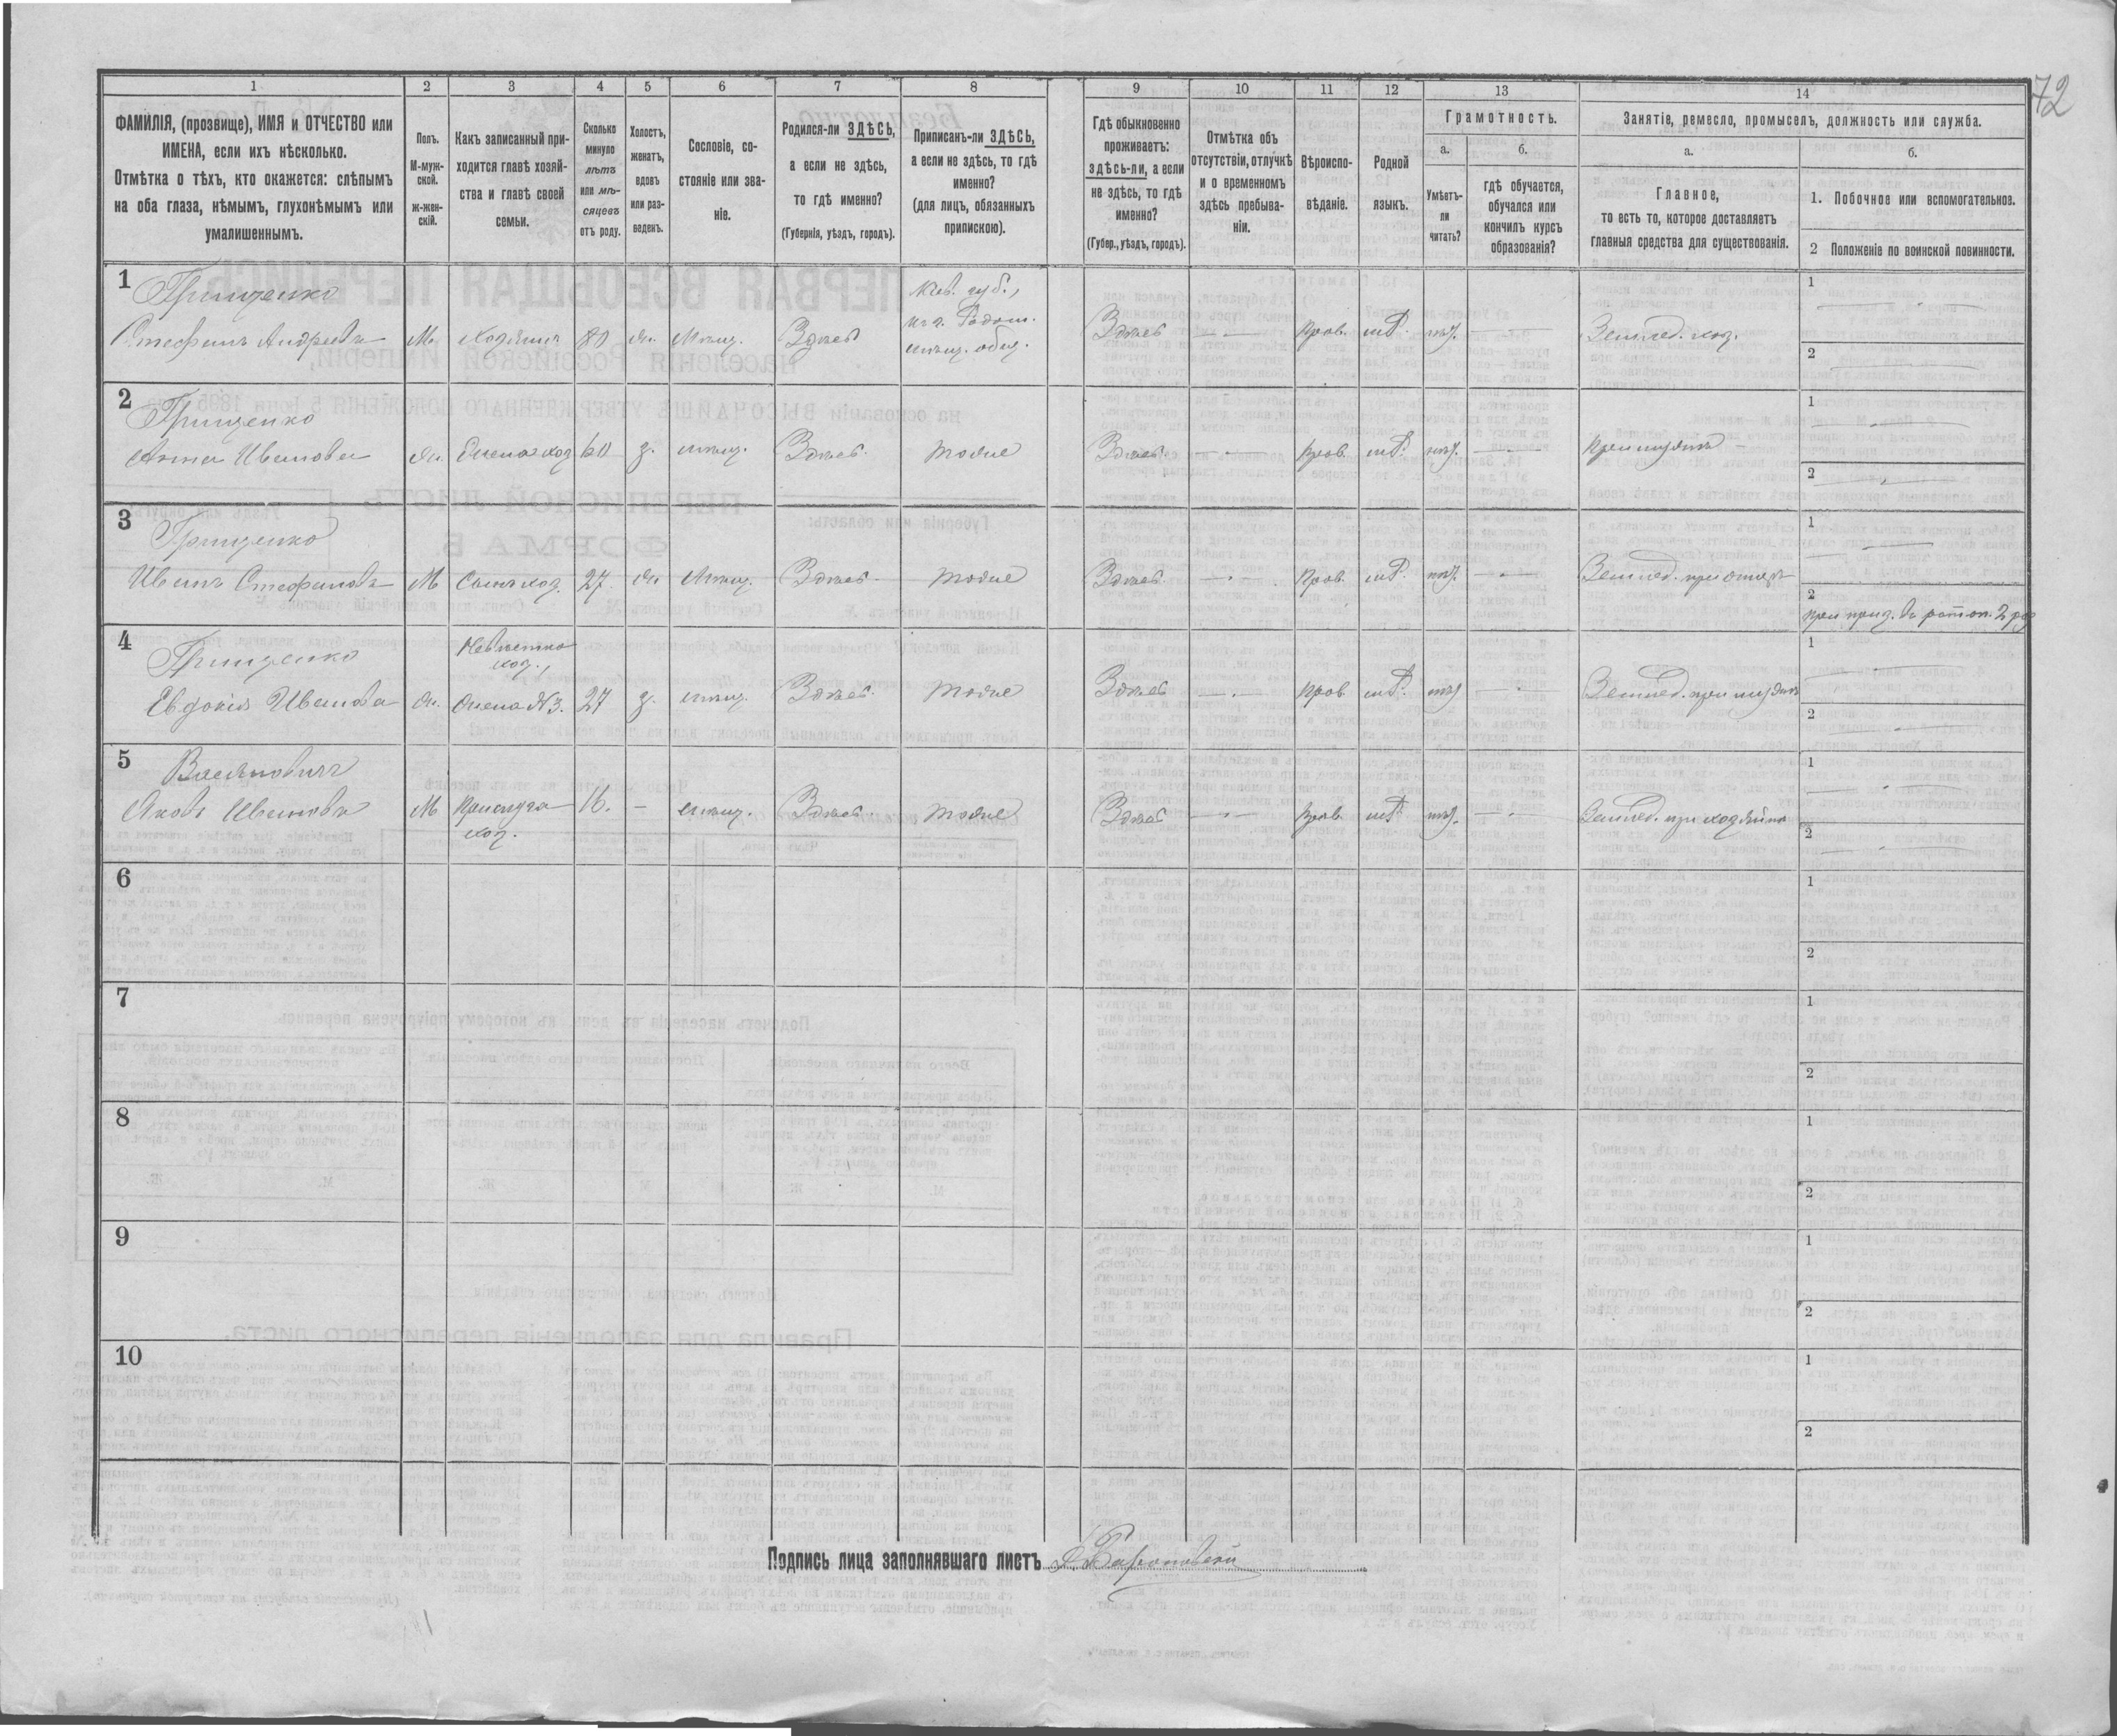 72
1 2 3 4 5 6 7 8 9 10 11 12 13 14
ФАМИЛІЯ, (прозвище), ИМЯ и ОТЧЕСТВО или
ИМЕНА, если ихъ нѣсколько.
Отмѣтка о тѣхъ, кто окажется: слѣпымъ
на оба глаза, нѣмымъ, глухонѣмымъ или
умалишеннымъ.
Полъ.
М-муж-
ской.
Ж-жен-
скій.
Какъ записанный при-
ходится главѣ хозяй-
ства и главѣ своей
семьи.
Сколько
минуло
лѣтъ
или мѣ-
сяцевъ
отъ роду.
Холостъ,
женатъ,
вдовъ
или раз-
веденъ.
Сословіе, со-
стояніе или зва-
ніе.
Родился-ли ЗДѢСЬ,
а если не здѣсь,
то гдѣ именно?
(Губернія, уѣздъ, городъ).
Приписанъ-ли ЗДѢСЬ,
а если не здѣсь, то гдѣ
именно?
(для лицъ, обязанныхъ
припискою).
Гдѣ обыкновенно
проживаетъ:
здѣсь-ли, а если
не здѣсь, то гдѣ
именно?
(Губер., уѣздъ, городъ).
Отмѣтка объ
отсутствіи, отлучкѣ
и о временномъ
здѣсь пребыва-
ніи.
Вѣроиспо-
вѣданіе.
Родной
языкъ.
Грамотность.
а.
Умѣетъ-
ли
читать?
б.
гдѣ обучается,
обучался или
кончилъ курсъ
образованія?
Занятіе, ремесло, промыселъ, должность или служба.
а.
Главное,
то есть то, которое доставляетъ
главныя средства для существованія.
б.
1. Побочное или вспомогательное.
2 Положеніе по воинской повинности.
1
Грищенко
Стефанъ Андреевъ М. Хозяинъ 80 ж. Мѣщ. Здѣсь
Кіев. губ.,
мѣщ. общ.
Здѣсь — Прав. нѣт. — Землед. хоз.
1
2
2
Грищенко
Анна Иванова ж. Жена хоз 60 з. мѣщ. Здѣсь тоже Здѣсь — Прав. нѣт. — При мужѣ
1
2
3
Грищенко
Иванъ Стефановъ М Сынъ хоз. 27 ж Мѣщ. Здѣсь тоже Здѣсь — Прав. нѣт. — Землед. при отцѣ
1
2
4
Грищенко
Невѣстка
хоз.,
Евдокія Иванова ж. Жена №3. 27 з. мѣщ. Здѣсь тоже Здѣсь — Прав. нѣт — Землед. при мужѣ
1
2
5
Яковъ Ивановъ М Прислуга 16. — мѣщ. Здѣсь тоже Здѣсь — Прав. нѣт. — Землед. при хозяинѣ
хоз.
1
2
6
1
2
7
1
2
8
1
2
9
1
2
10
1
2
Подпись лица заполнявшаго листъ